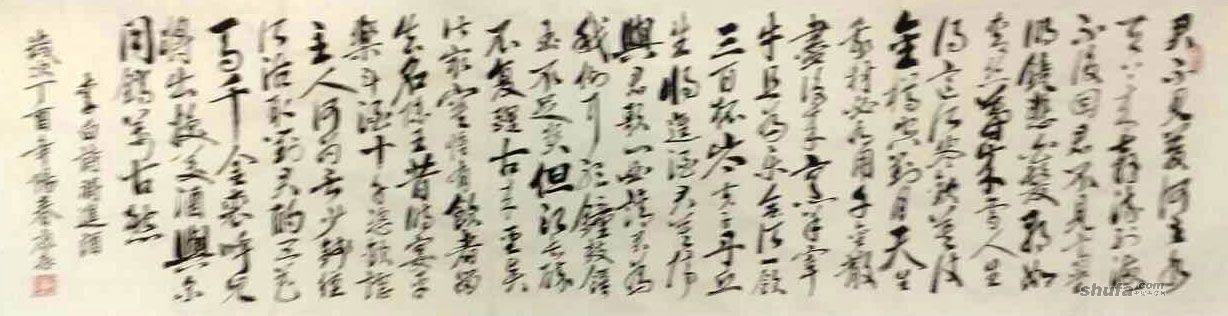 君不見黃河之水
天上來奔流到海
不復回君不見高堂
明鏡悲白髮朝如
青絲暮成雪人生
得意須盡歡莫使
金樽空對月天生
我材必有用千金散
盡還復來烹羊宰
牛且為樂會須一飲
三百杯岑夫子丹丘
生將進酒君莫停
與君歌一曲請君為
我側耳聽鐘鼓饌
玉不足貴但願長醉
不復醒古來聖賢
皆寂寞惟有飲者留
其名陳王昔時宴平
樂斗酒十千恣歡謔
主人何為言少錢徑
須沽取對君酌五花
馬千金裘呼兒
將出換美酒與爾
同銷萬古愁
李白詩將進酒
歲次丁酉年陽春
shufa.com